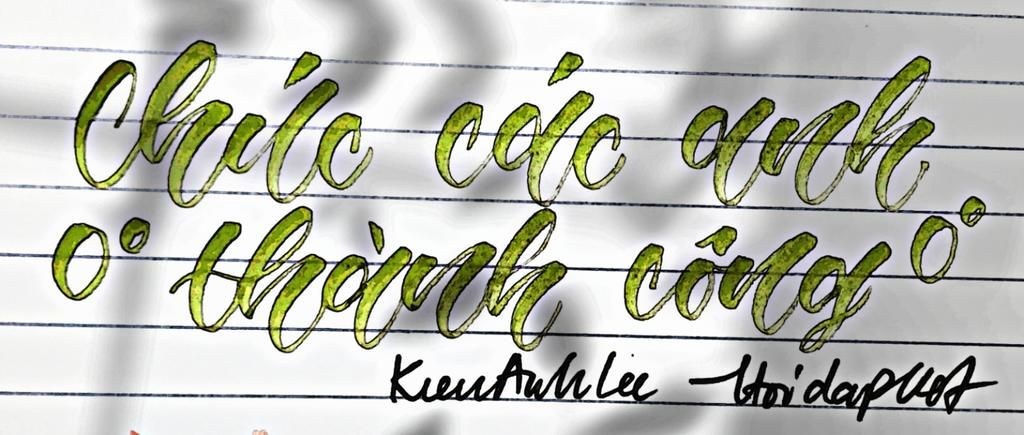 Chúc các anh
thành công
KienAnhLee - Hoidap